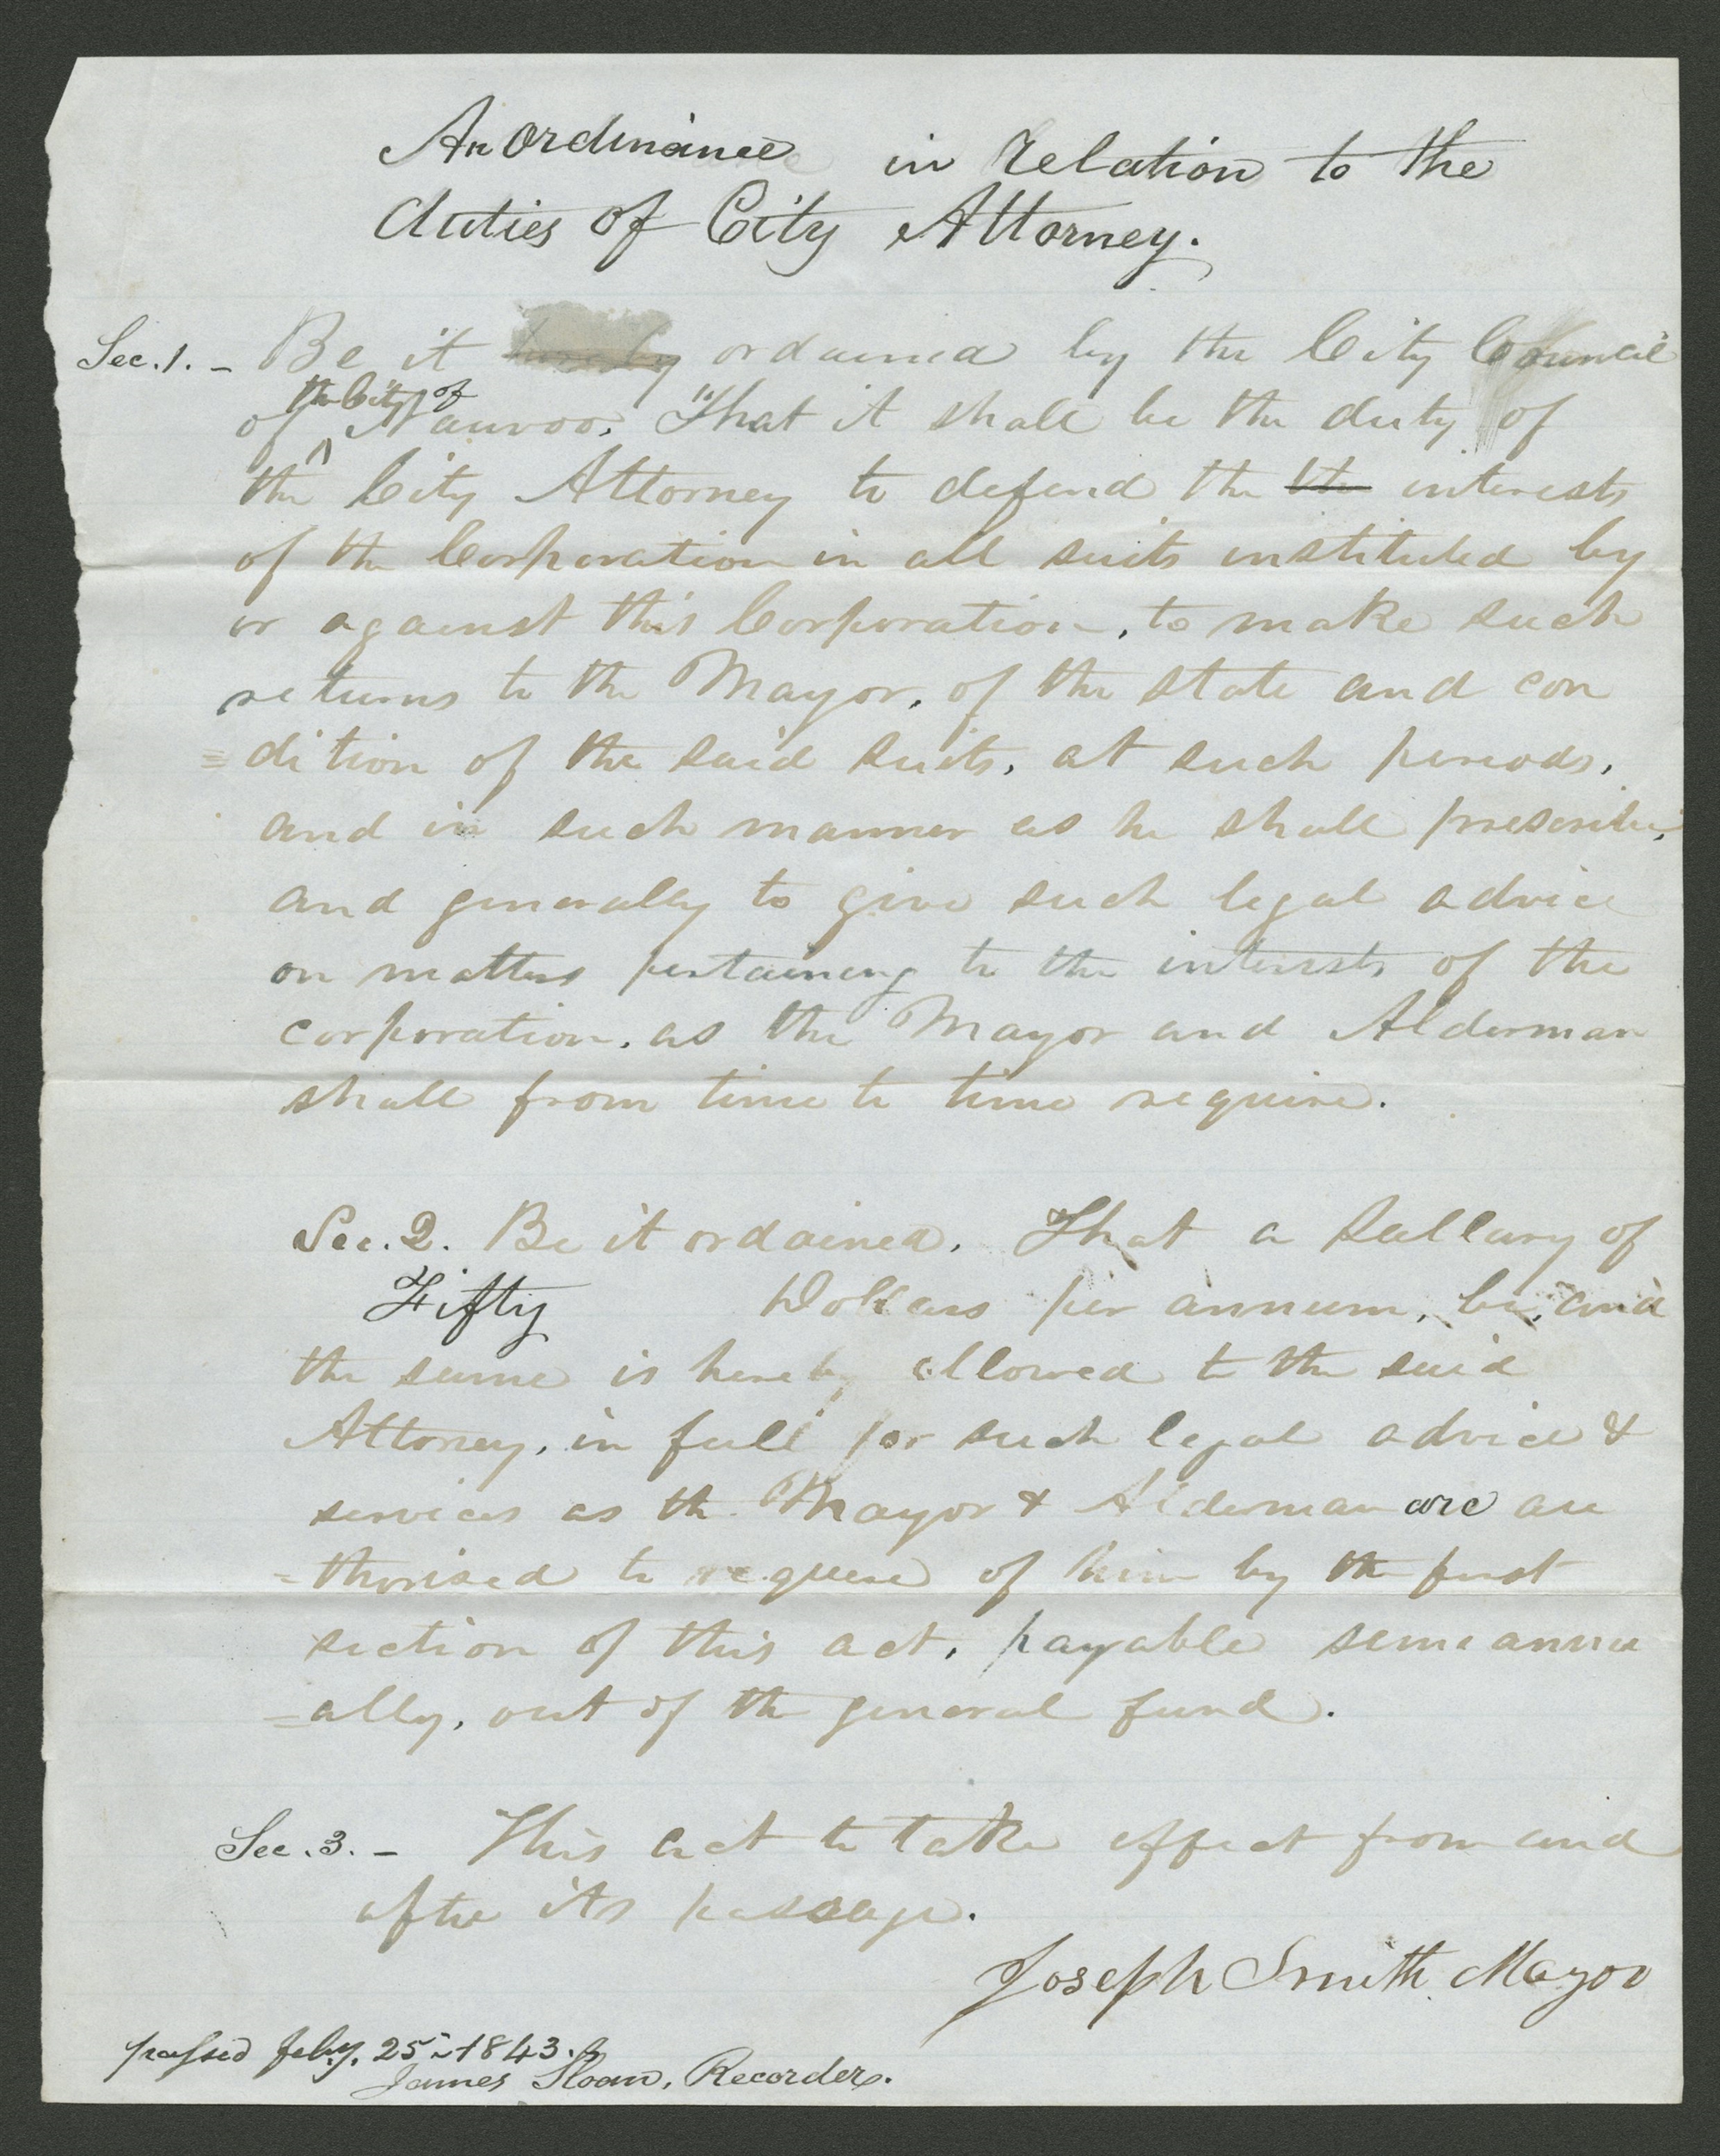 An Ordinance in relation to the
duties of City Attorney.
Sec. 1. - Be it hereby ordained by the City Council
the City of
of Nauvoo, That it shall be the duty of
the City Attorney to defend the the interests
of the Corporation in all suits instituted by
or against this Corporation, to make such
returns to the Mayor, of the state and con
=dition of the said suits, at such periods,
and in such manner as he shall prescribe,
and generally to give such legal advice
on matters pertaining to the interests of the
corporation, as the Mayor and Alderman
shall from time to time require.
Sec. 2. Be it ordained, That a Sallary of
Fifty Dollars per annum, be, and
the same is hereby allowed to the said
Attorney, in full for such legal advice &
services as the Mayor & Alderman are au
=thorised to require of him by the first
section of this act, payable semi annu
=ally, out of the general fund.
Sec. 3. - This act to take effect from and
after its passage.
Joseph Smith Mayor
passed Feby. 25- 1843.
James Sloan, Recorder.